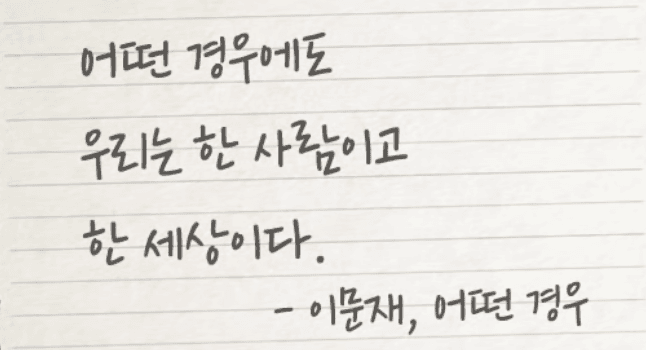 어떤 경우에도
우리는 한 사람이고
한 세상이다.
- 이문재, 어떤 경우